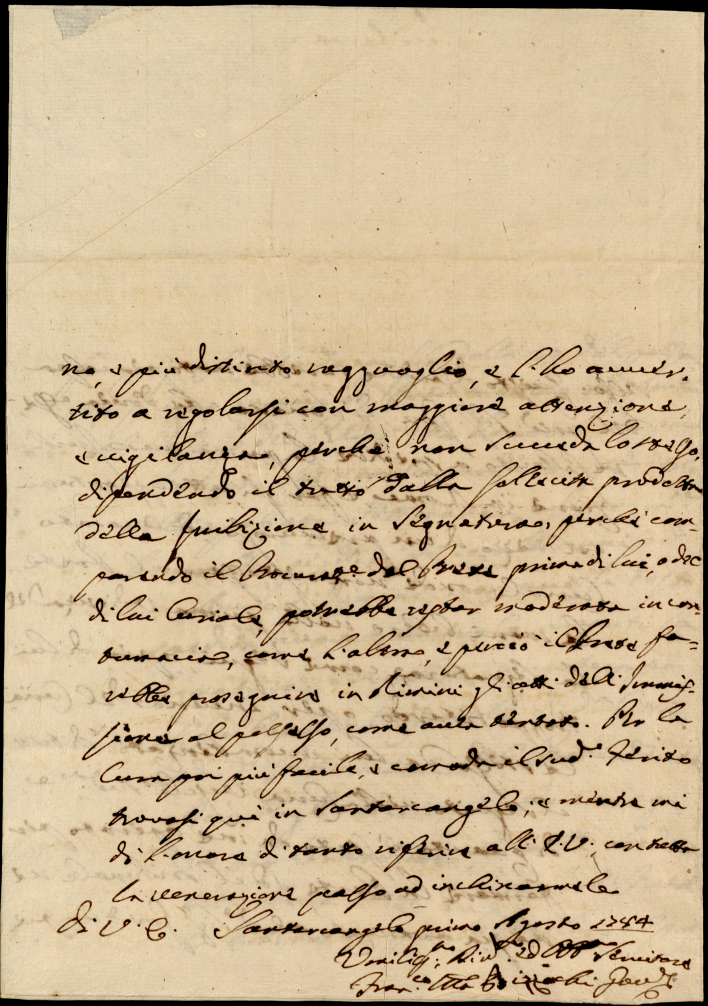 no, e più distinto ragguaglio, e l'ho auver-
tito a regolarsi con maggiore attenzione,
e vigilanza, perche non succeda lo stesso,
dipendendo il tutto dalla sollecita prodotta
della Inibizione in Segnatura, perche com-
parendo il Procurat.e del Prete prima di lui, o del
di lui Curiale, potrebbe restar moderata in con-
tumacia, come l'altra, e perciò il Prete fa-
rebbe proseguire in Rimini gli atti dell'Immis-
sione al possesso, come avea tentato. Per la
Cura poi più facile, e comoda il sud.o ferito
trovasi quì in Santarcangelo; e mentre mi
dò l'onore di tanto riferire all'E.V., con tutta
la venerazione passo ad inchinarmele
di V. E. Santarcangelo primo Agosto 1754
Umilis.mo Div.mo ed Obb.mo Servitore
Fran.co